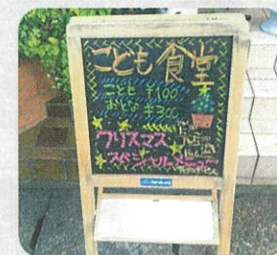 こども食堂
こども ¥100
おとな ¥300
クリスマス
スペシャルメニュー